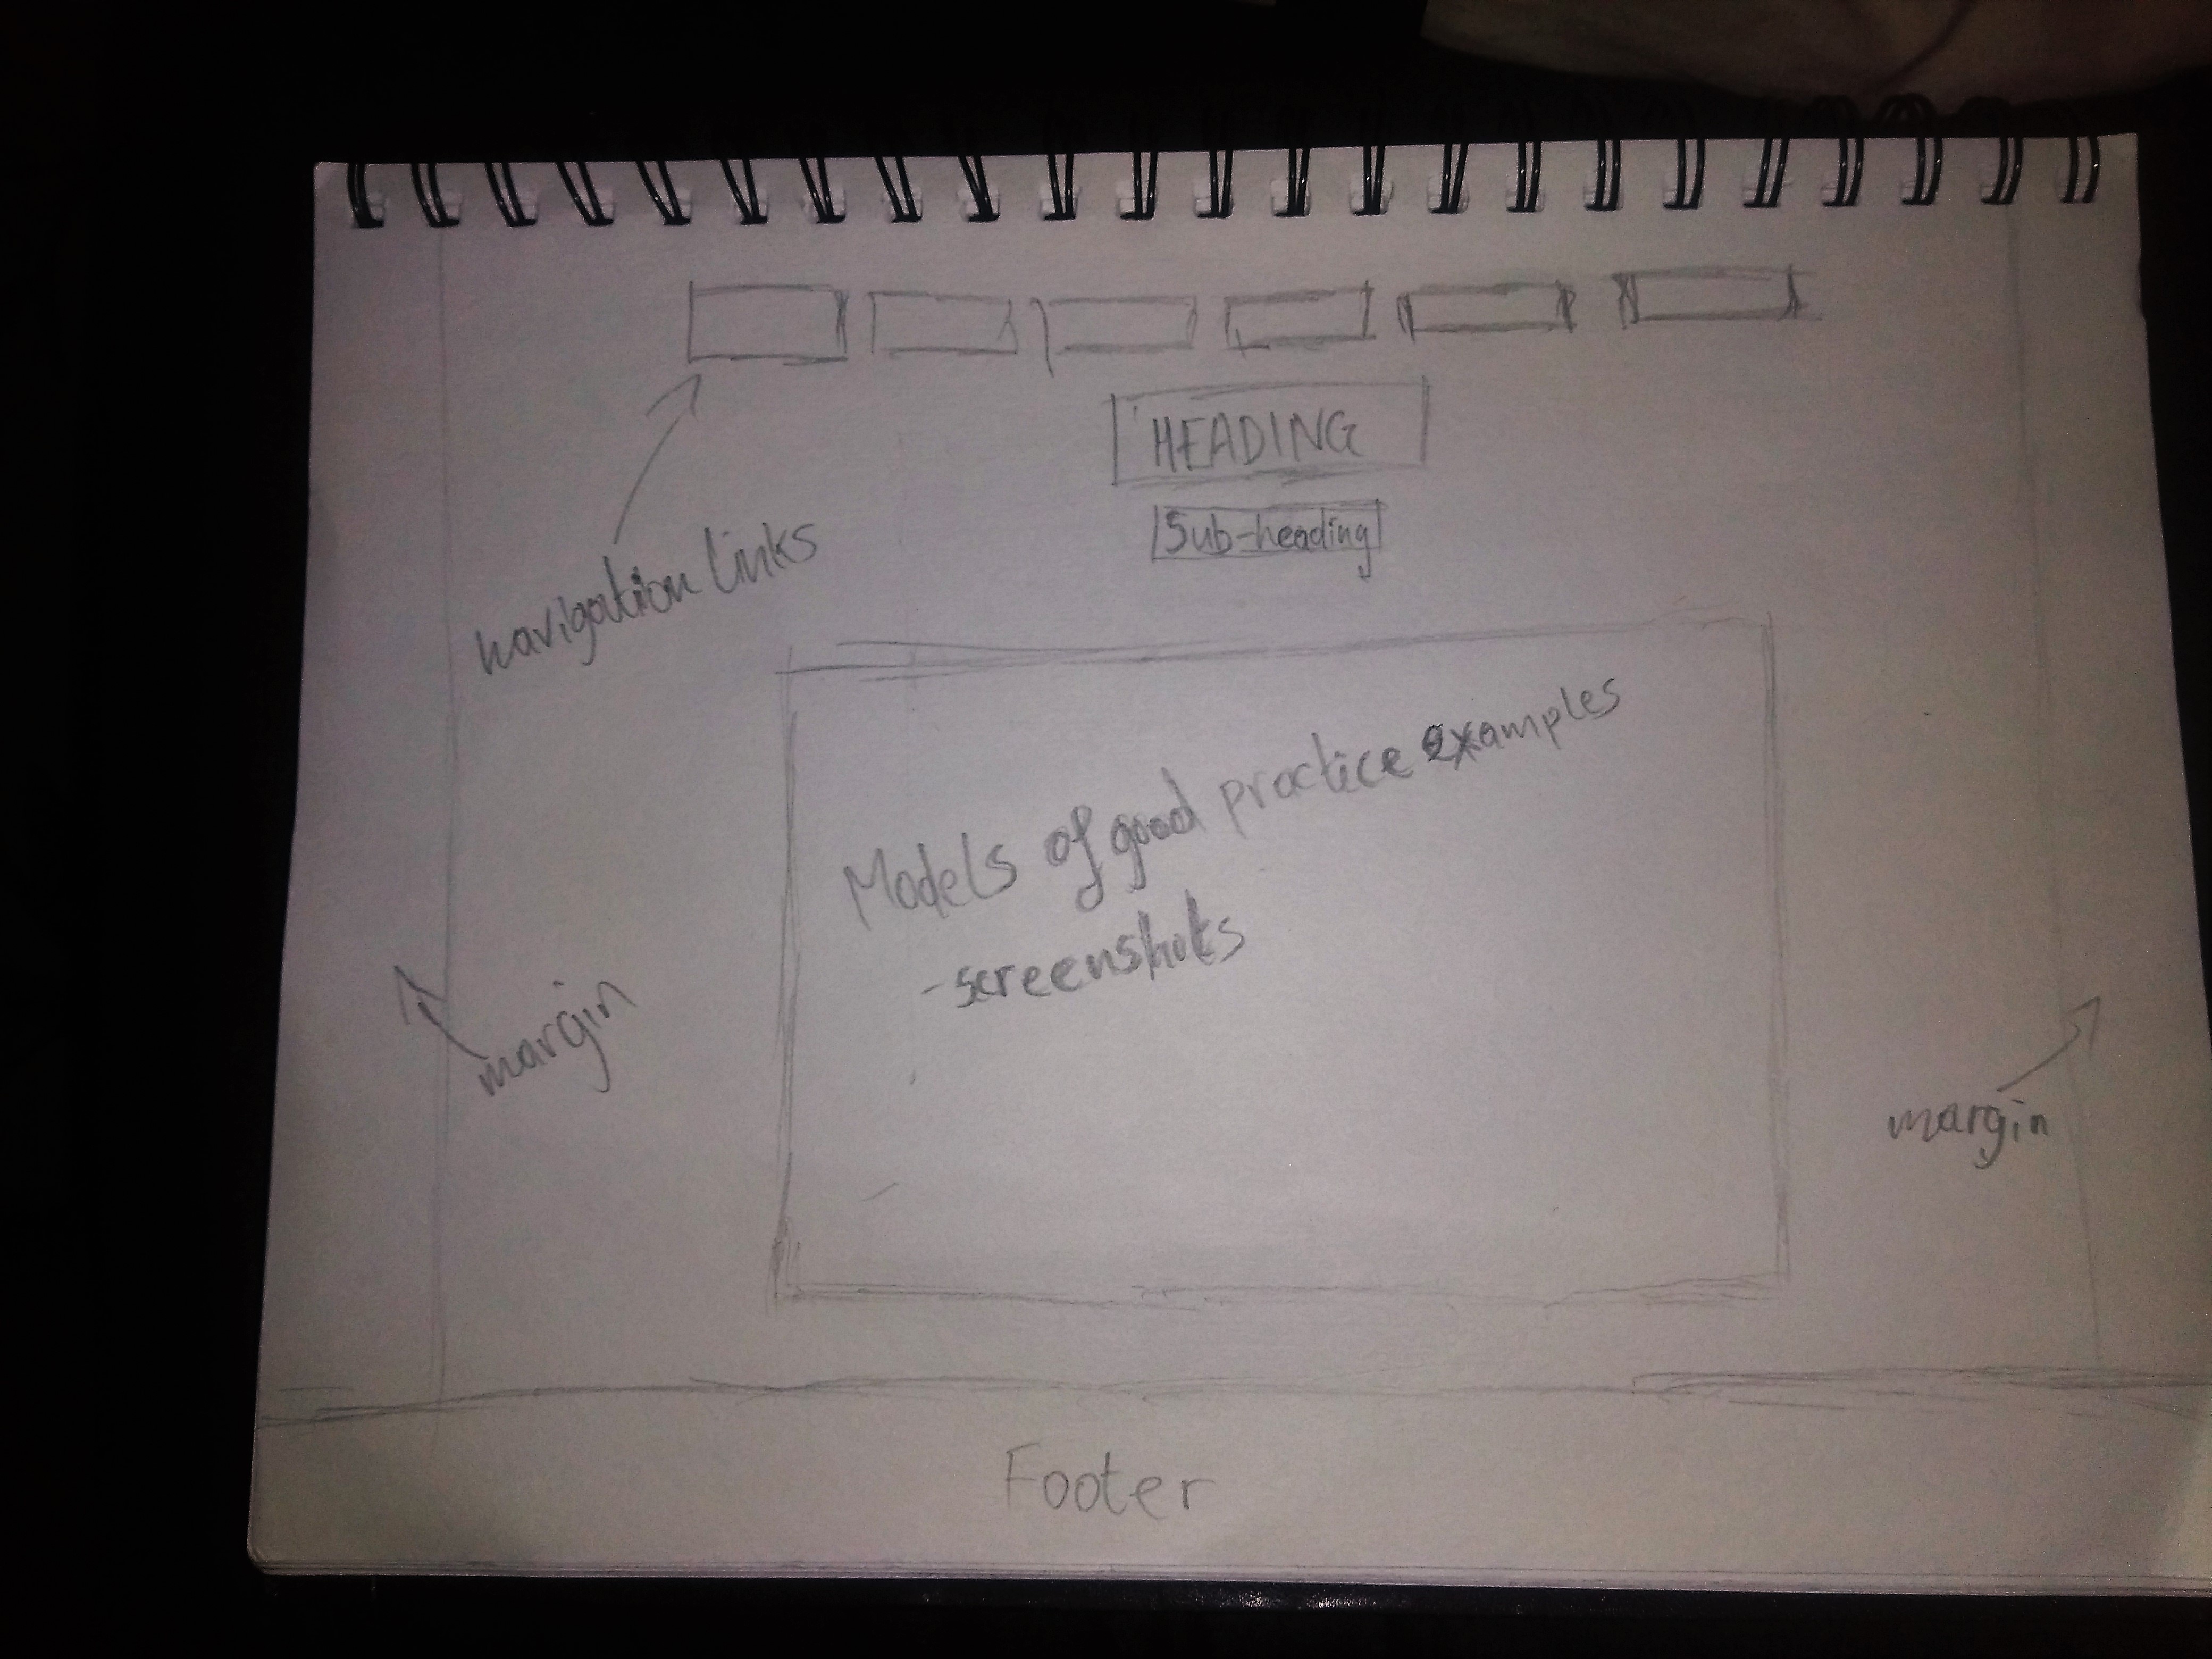 HEADING
Sub-heading
navigation links
Models of good practice examples
-screenshots
margin
margin
Footer